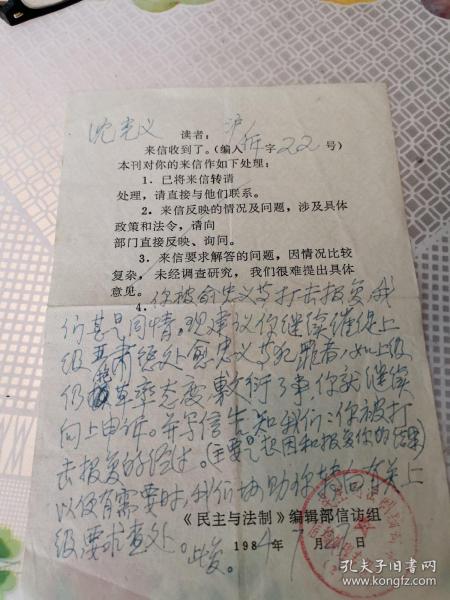 沈光义 读者：
来信收到了。(编入沪信字22号)
本刊对你的来信作如下处理：
1．已将来信转请
处理，请直接与他们联系。
2．来信反映的情况及问题，涉及具体
政策和法令，请向
部门直接反映、询问。
3．来信要求解答的问题，因情况比较
复杂，未经调查研究，我们很难提出具体
意见。
4．你被俞忠义等打击报复，我
们甚是同情。现建议你继续催促上
级严肃惩处愈忠义等犯罪者，如上级
仍草率态度敷衍了事，你就继续
向上申诉。并写信告知我们：你被打
击报复的经过。(主要是起因和报复你的结果)
以便有需要时，我们协助你转向有关上
级要求查处。此复。
《民主与法制》编辑部信访组
1984年7月 日
孔夫子旧书网